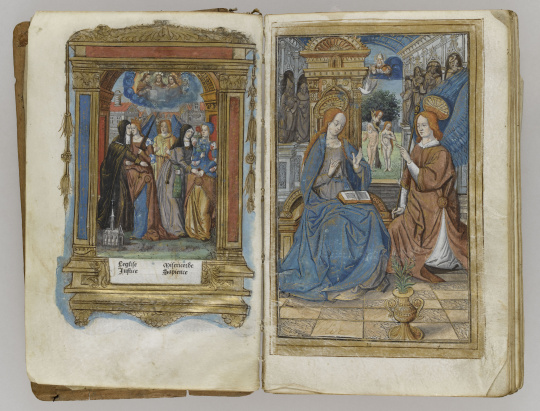 Leglise Misericorde
Justice Sapience